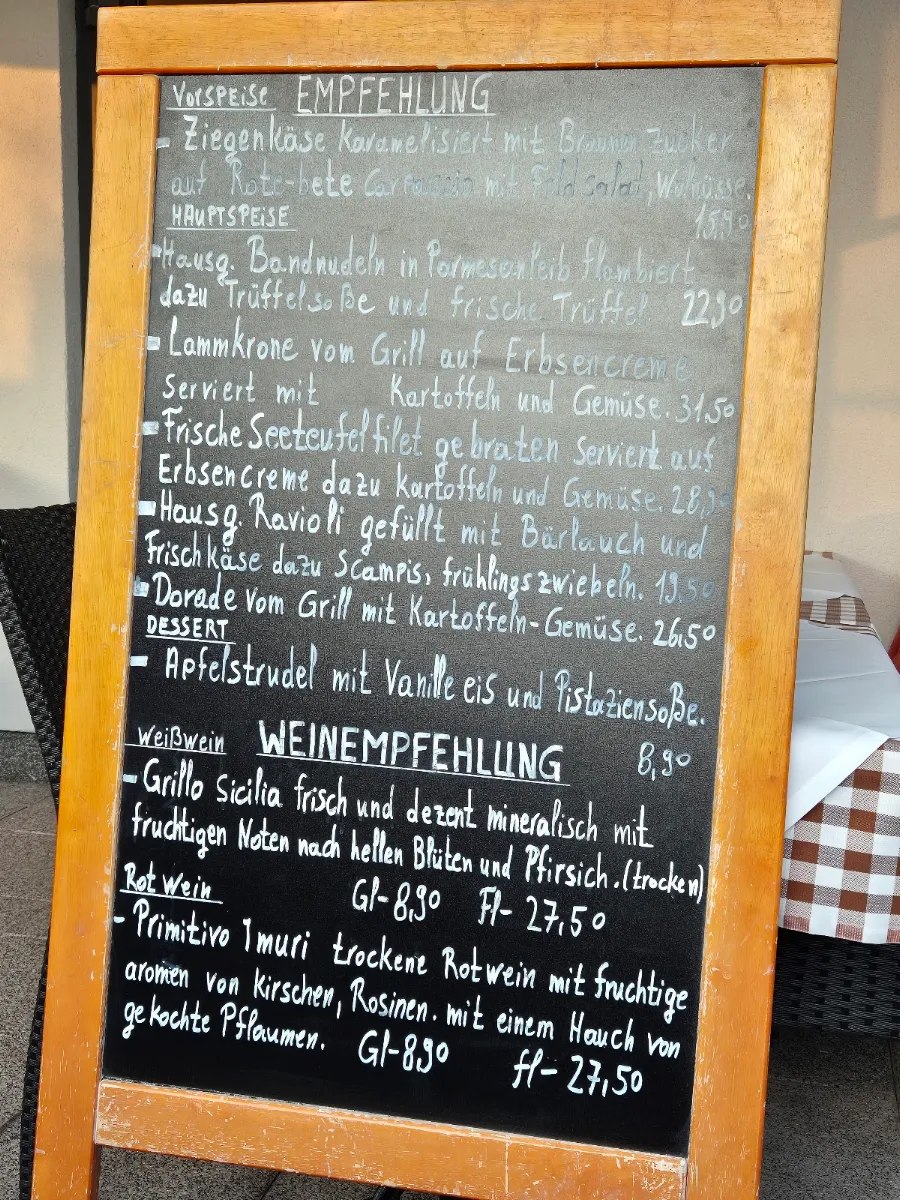 Vorspeise EMPFEHLUNG
- Ziegenkäse Karamelisiert mit Braunen Zucker
auf Rote-bete Carpaccio mit Feldsalat, Walnüsse.
15,90
HAUPTSPEISE
- Hausg. Bandnudeln in Parmesanleib flambiert
dazu Trüffelsoße und frische Trüffel 22,90
- Lammkrone vom Grill auf Erbsencreme
Serviert mit Kartoffeln und Gemüse. 31,50
- Frische Seeteufelfilet gebraten Serviert auf
Erbsencreme dazu Kartoffeln und Gemüse. 28,90
- Hausg. Ravioli gefüllt mit Bärlauch und
Frischkäse dazu Scampis, frühlingszwiebeln. 19,50
- Dorade vom Grill mit Kartoffeln-Gemüse. 26,50
DESSERT
- Apfelstrudel mit Vanilleeis und Pistaziensoße.
8,90
Weißwein WEINEMPFEHLUNG
- Grillo Sicilia frisch und dezent mineralisch mit
fruchtigen Noten nach hellen Blüten und Pfirsich. (trocken)
Gl- 8,90 Fl- 27,50
Rotwein
- Primitivo Imuri trockene Rotwein mit fruchtige
aromen von Kirschen, Rosinen. mit einem Hauch von
gekochte Pflaumen. Gl- 8,90 fl- 27,50